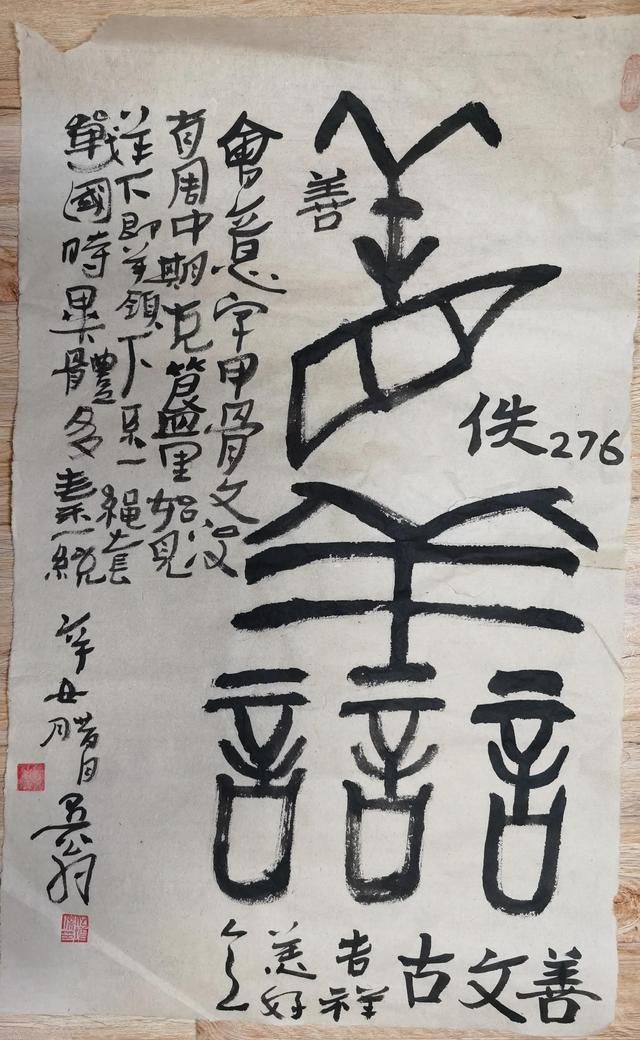 善
佚276
譱
古文善
吉祥
美好
會意字甲骨文没
有周中期克里始見
羊下即羊領下系一繩套
戰國時異體多秦一統
辛丑腊月
翁